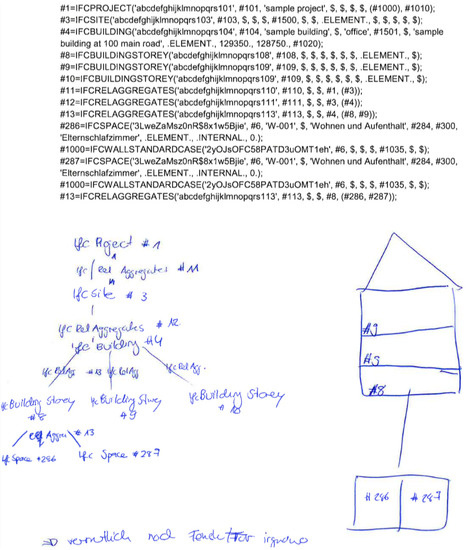 #1=IFCPROJECT('abcdefghijklmnopqrs101', #101, 'sample project', $, $, $, $, (#1000), #1010);
#3=IFCSITE('abcdefghijklmnopqrs103', #103, $, $, $, #1500, $, $, .ELEMENT., $, $, $, $, $);
#4=IFCBUILDING('abcdefghijklmnopqrs104', #104, 'sample building', $, 'office', #1501, $, 'sample
building at 100 main road', .ELEMENT., 129350., 128750., #1020);
#8=IFCBUILDINGSTOREY('abcdefghijklmnopqrs108', #108, $, $, $, $, $, $, .ELEMENT., $);
#9=IFCBUILDINGSTOREY('abcdefghijklmnopqrs109', #109, $, $, $, $, $, $, .ELEMENT., $);
#10=IFCBUILDINGSTOREY('abcdefghijklmnopqrs109', #109, $, $, $, $, $, $, .ELEMENT., $);
#11=IFCRELAGGREGATES('abcdefghijklmnopqrs110', #110, $, $, #1, (#3));
#12=IFCRELAGGREGATES('abcdefghijklmnopqrs111', #111, $, $, #3, (#4));
#13=IFCRELAGGREGATES('abcdefghijklmnopqrs113', #113, $, $, #4, (#8, #9));
#286=IFCSPACE('3LweZaMsz0nR$8x1w5Bjie', #6, 'W-001', $, 'Wohnen und Aufenthalt', #284, #300,
'Elternschlafzimmer', .ELEMENT., .INTERNAL., 0.);
#1000=IFCWALLSTANDARDCASE('2yOJsOFC58PATD3uOMT1eh', #6, $, $, $, #1035, $, $);
#287=IFCSPACE('3LweZaMsz0nR$8x1w5Bjie', #6, 'W-001', $, 'Wohnen und Aufenthalt', #284, #300,
'Elternschlafzimmer', .ELEMENT., .INTERNAL., 0.);
#1000=IFCWALLSTANDARDCASE('2yOJsOFC58PATD3uOMT1eh', #6, $, $, $, #1035, $, $);
#13=IFCRELAGGREGATES('abcdefghijklmnopqrs113', #113, $, $, #8, (#286, #287));
Ifc Project #1
Ifc Rel Aggregates #11
Ifc Site #3
Ifc Rel Aggregates #12
Ifc Building #4
Ifc Rel Agg #13 Ifc Rel Agg Ifc Rel Agg.
Ifc Building Storey Ifc Building Storey Ifc Building Storey
#8 #9 #10
Aggre #13
Ifc Space #286 Ifc Space #287
#9
#9
#8
#286 #287
vermutlich noch